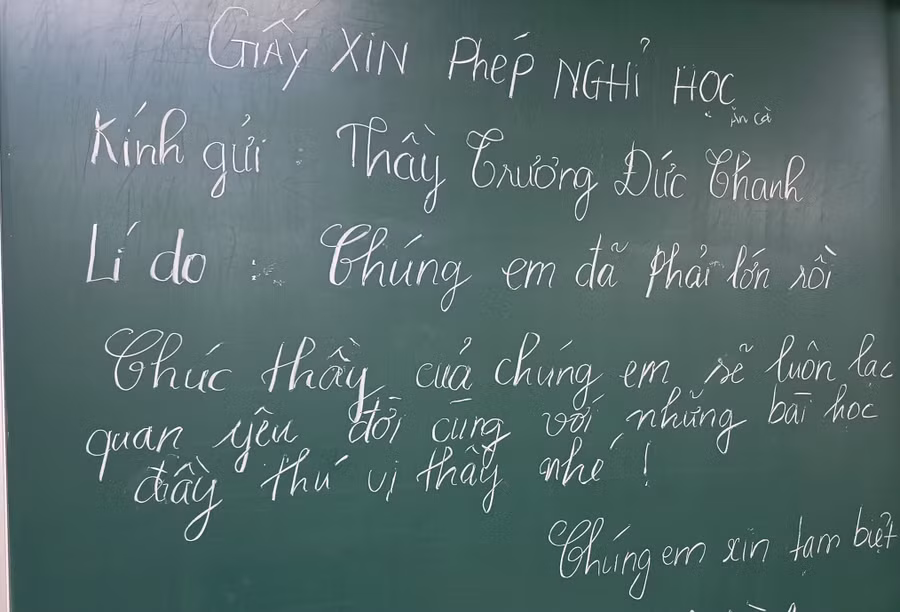 GIẤY XIN PHÉP NGHỈ HỌC
ăn cá
Kính gửi : Thầy Trương Đức Thanh
Lí do : Chúng em đã phải lớn rồi
Chúc thầy của chúng em sẽ luôn lạc
quan yêu đời cùng với những bài học
đầy thú vị thầy nhé !
Chúng em xin tạm biệt